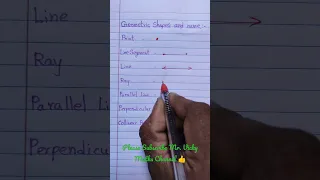 Geometric Shapes and names :-
Point
Line Segment
Line
Ray
Parallel Line
Perpendicular
Please Subscribe Mr. Urdu
Maths Channel 👍
Line
Ray
Parallel Li
Perpendicu